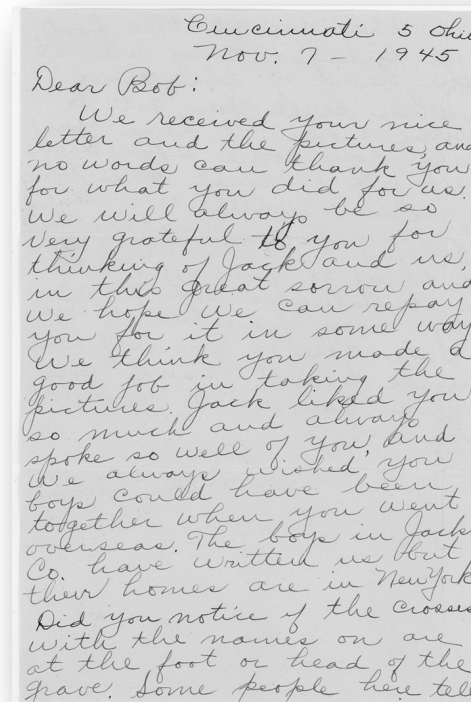 Cincinnati 5 Ohio
Nov. 7 - 1945
Dear Bob:
We received your nice
letter and the pictures, and
no words can thank you
for what you did for us.
We will always be so
very grateful to you for
thinking of Jack and us,
in this great sorrow and
we hope we can repay
you for it in some way
We think you made a
good job in taking the
pictures. Jack liked you
so much and always
spoke so well of you and
we always wished, you
boys could have been
together when you went
overseas. The boys in Jack
Co. have written us but
their homes are in New York
Did you notice if the crosses
with the names on are
at the foot or head of the
grave. Some people here tell